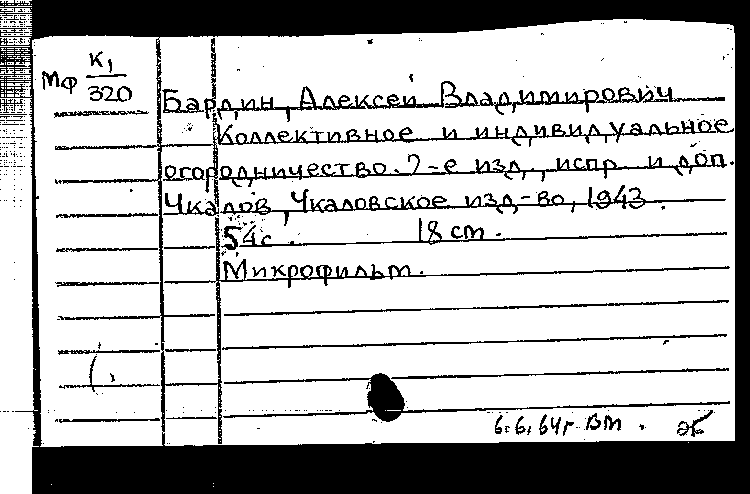 Мф К1/320
Бардин, Алексей Владимирович
Коллективное и индивидуальное
огородничество. 2-е изд., испр. и доп.
Чкалов, Чкаловское изд-во, 1943.
54с. 18 см.
Микрофильм.
6.6.64г. Вт.